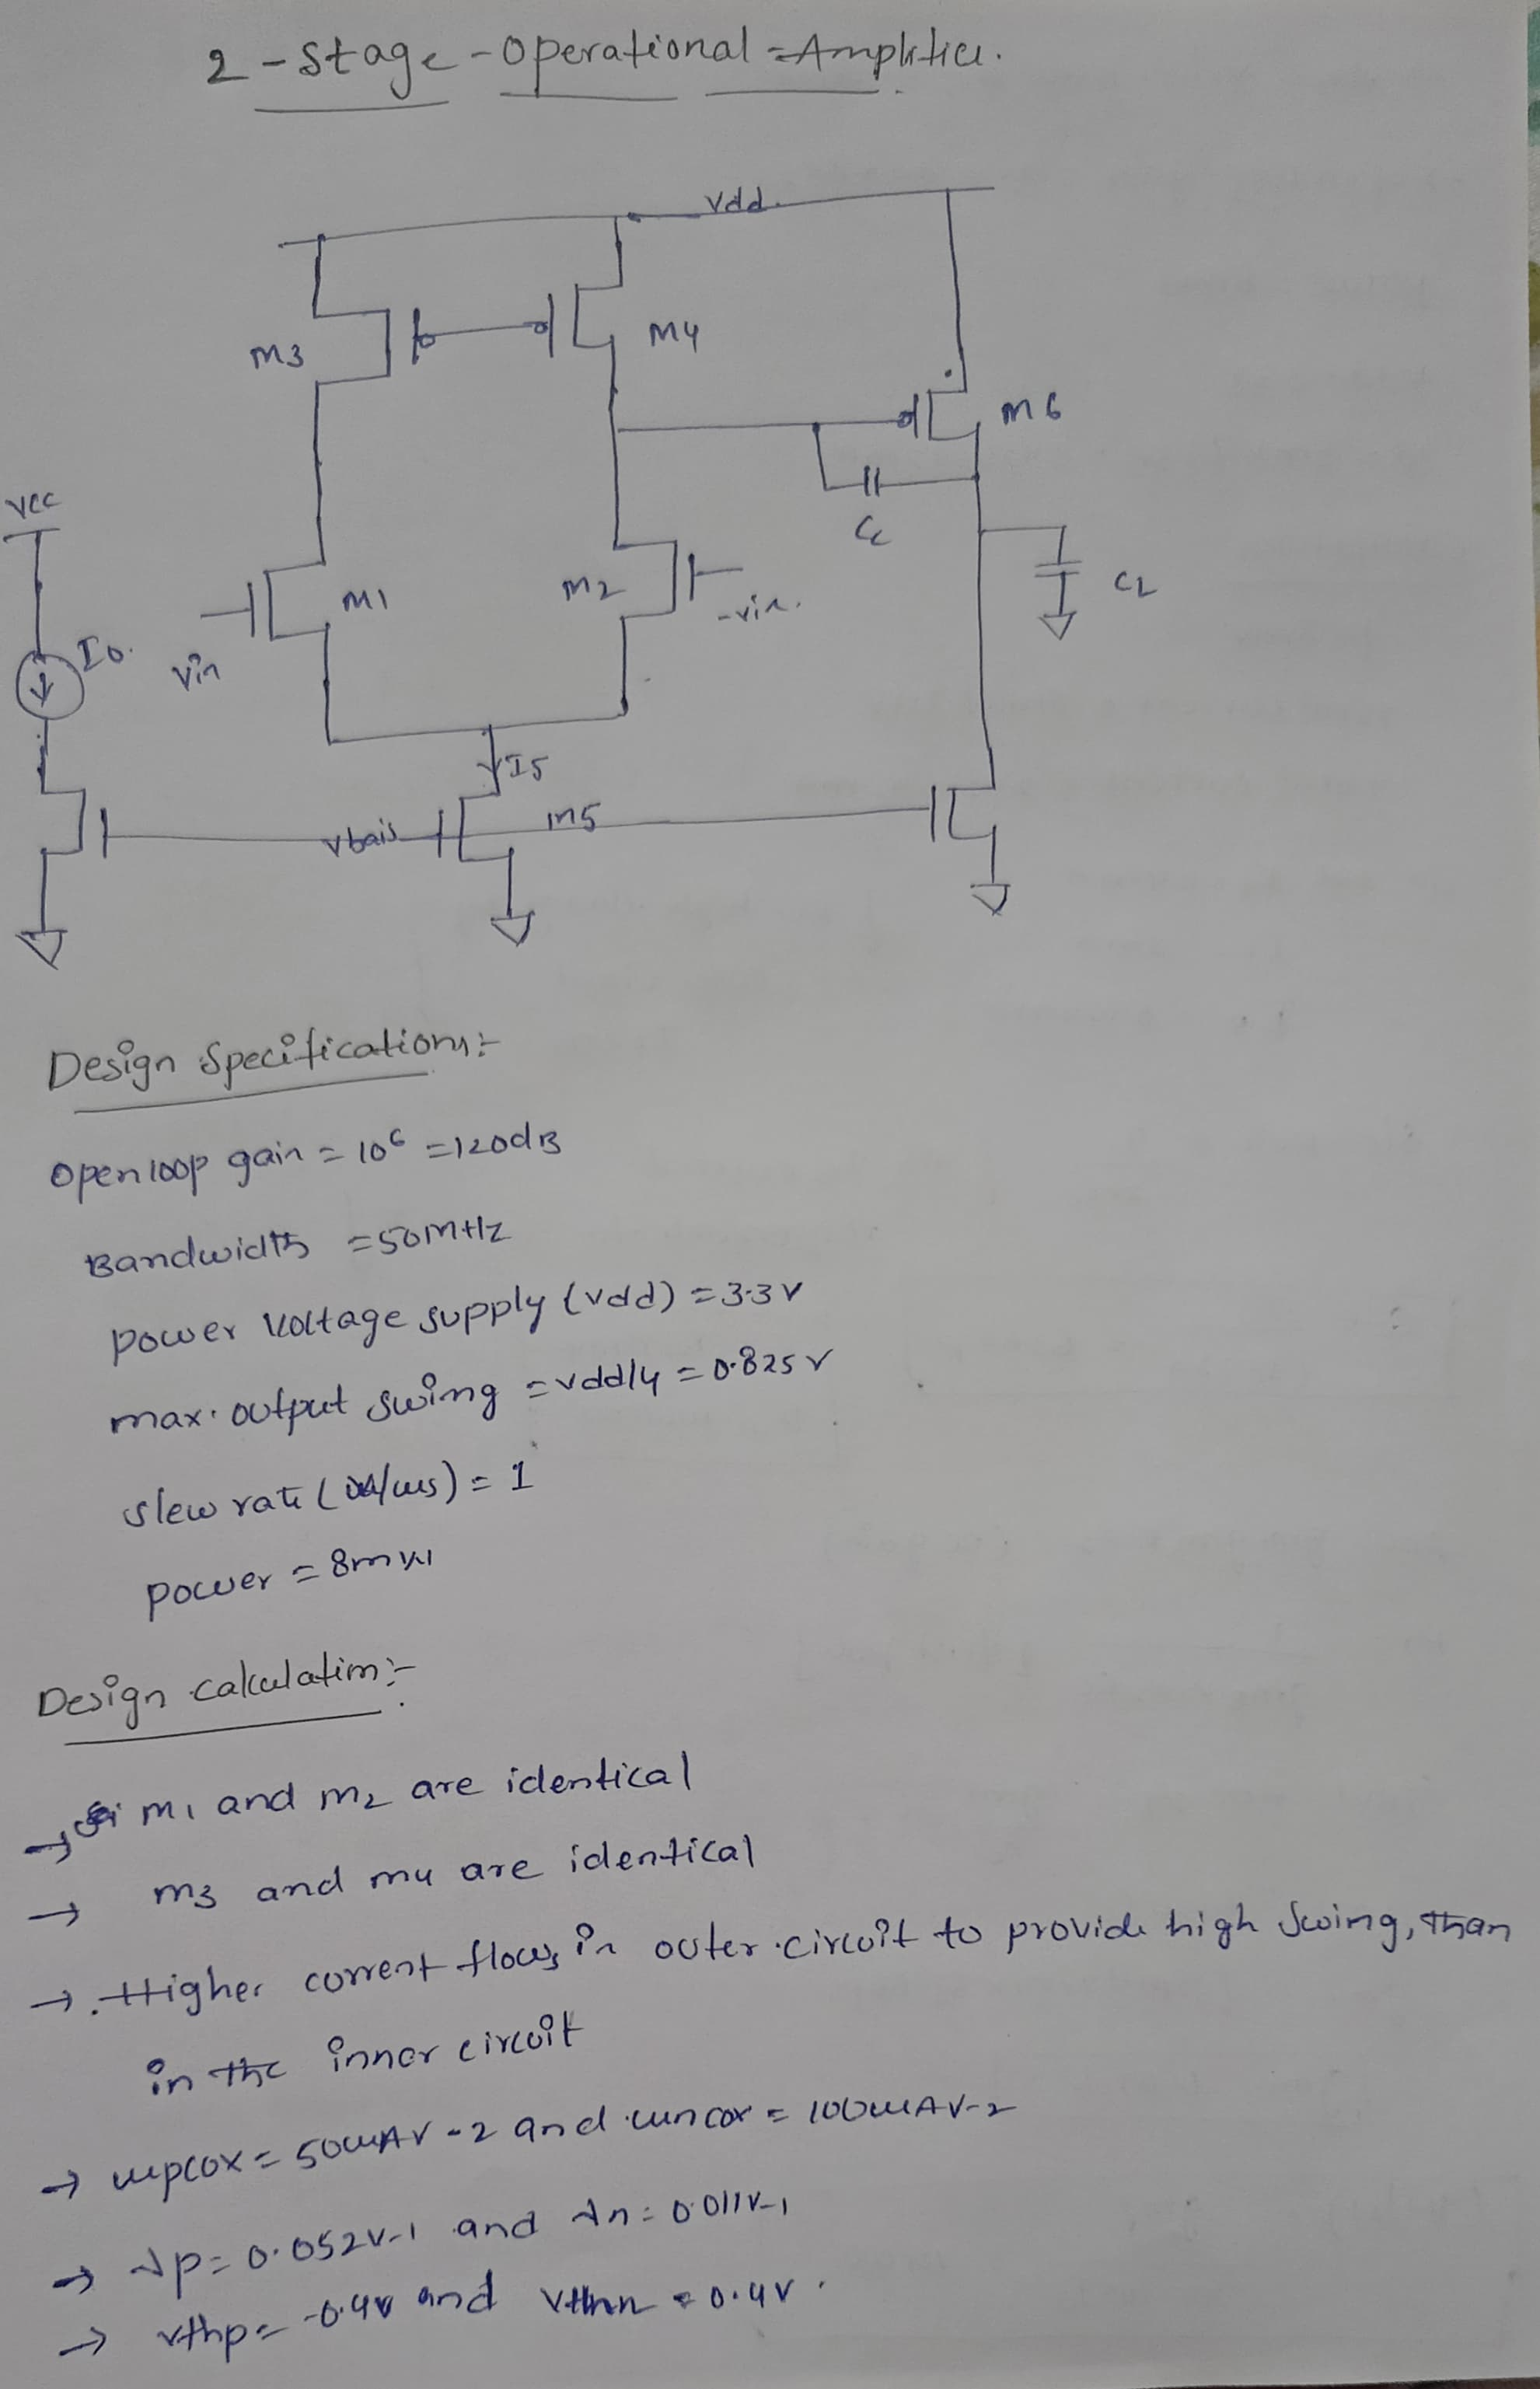 2-Stage-Operational-Amplifier.
Vdd.
M3
M4
M6
Cc
CL
Vcc
Io.
M1
M2
Vin
-vin.
I5
Vbais
M5
Design Specifications:-
Open loop gain = 10^6 = 120dB
Bandwidth = 50MHz
power voltage supply (vdd) = 3.3V
max. output swing = vdd/4 = 0.825V
slew rate ( /us) = 1
power = 8mW
Design calculation:-
→ M1 and M2 are identical
→ M3 and M4 are identical
→ Higher current flows in outer circuit to provide high swing, than
in the inner circuit
→ upcox = 50uAV-2 and uncox = 100uAV-2
→ λp = 0.052V-1 and λn = 0.011V-1
→ vthp = -0.4V and Vthn = 0.4V.